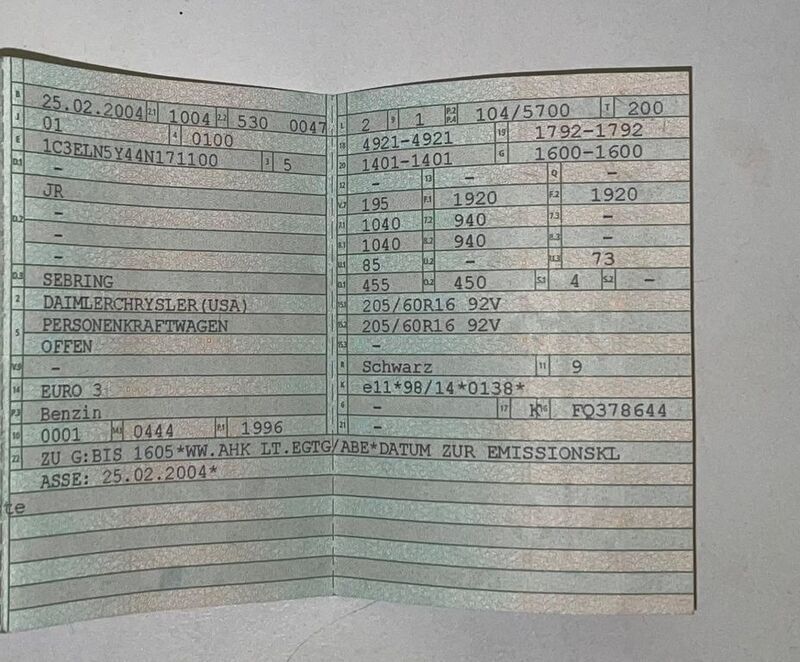 B 25.02.2004 2.1 1004 2.2 530 0047
J 01 4 0100
E 1C3ELN5Y44N171100 3 5
D.1 -
JR
-
D.2 -
-
D.3 SEBRING
2 DAIMLERCHRYSLER(USA)
5 PERSONENKRAFTWAGEN
OFFEN
V.9 -
14 EURO 3
P.3 Benzin
10 0001 14.1 0444 P.1 1996
L 2 9 1 P.2 P.4 104/5700 T 200
18 4921-4921 19 1792-1792
20 1401-1401 G 1600-1600
12 - 13 - Q -
V.7 195 F.1 1920 F.2 1920
7.1 1040 7.2 940 7.3 -
8.1 1040 8.2 940 8.3 -
U.1 85 U.2 - U.3 73
O.1 455 O.2 450 S.1 4 S.2 -
15.1 205/60R16 92V
15.2 205/60R16 92V
15.3 -
R Schwarz 11 9
K e11*98/14*0138*
6 - 17 K 16 FQ378644
21 -
22 ZU G:BIS 1605*WW.AHK LT.EGTG/ABE*DATUM ZUR EMISSIONSKL
ASSE: 25.02.2004*
te